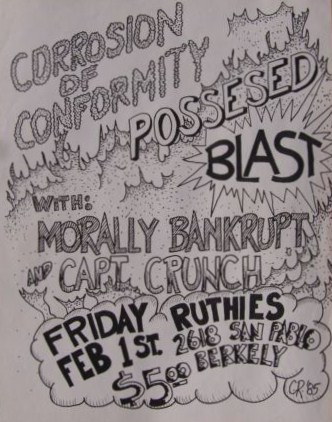 CORROSION
OF
CONFORMITY
POSSESED
BLAST
WITH:
MORALLY BANKRUPT
AND CAPT. CRUNCH
FRIDAY RUTHIES
FEB 1ST. 2618 SAN PABLO
BERKELY
$5.00
CR'85